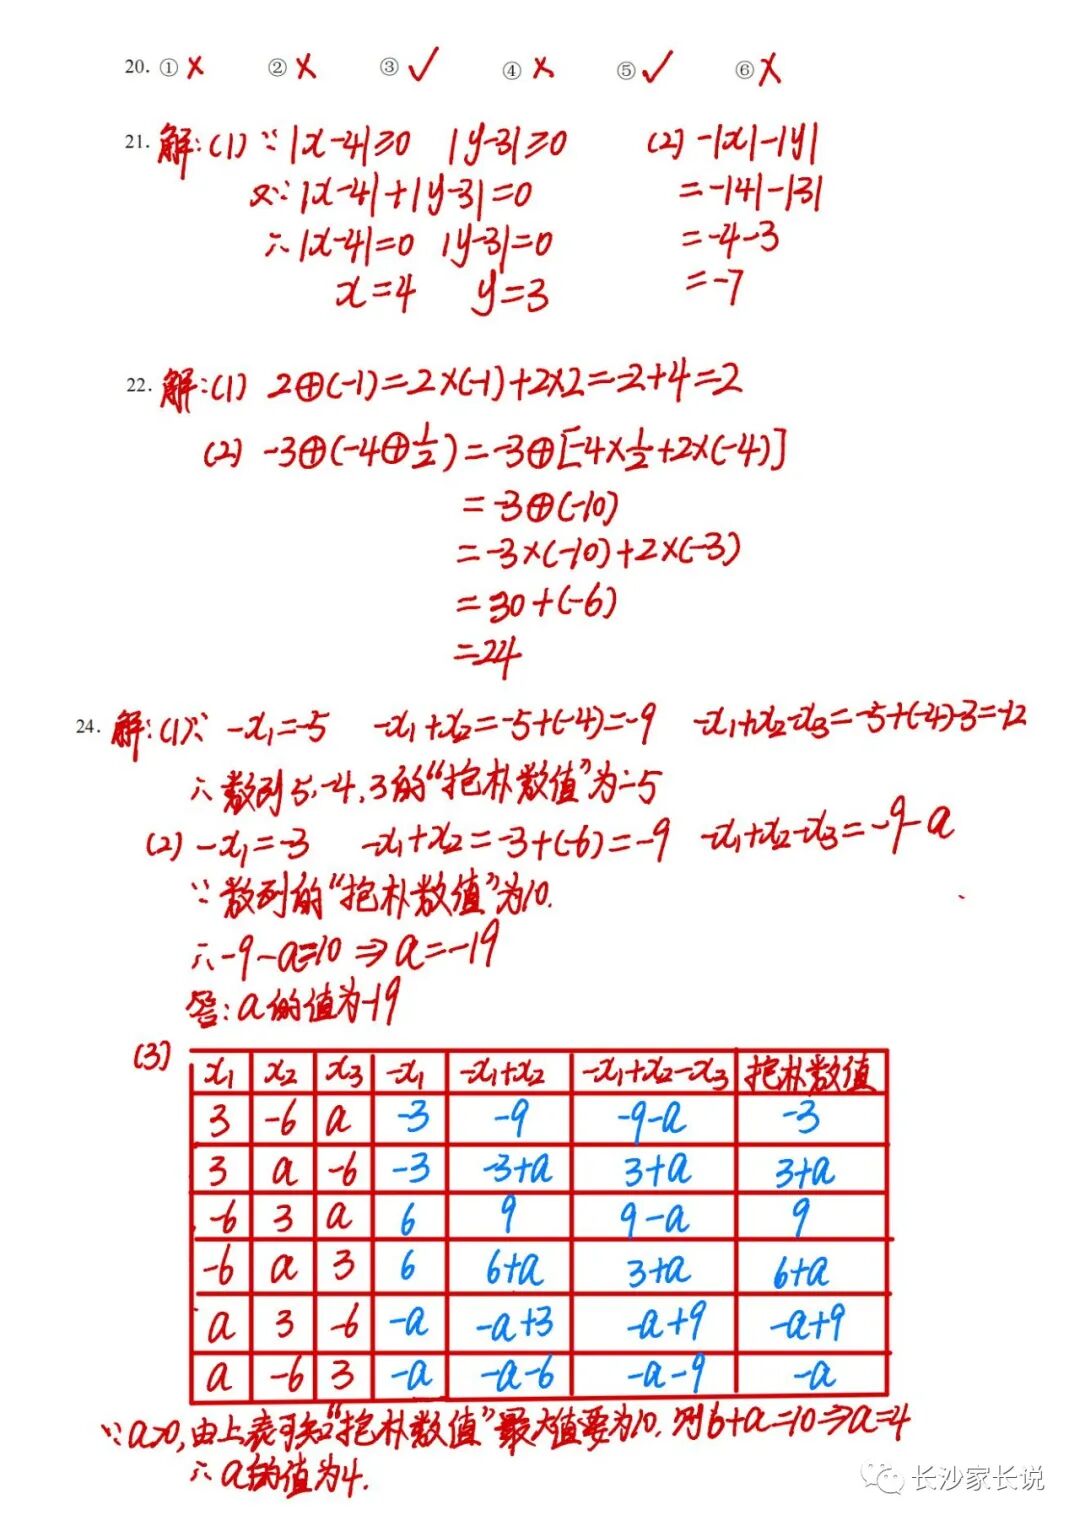 20. ① × ② × ③ ✓ ④ × ⑤ ✓ ⑥ ×
21. 解:(1) ∵ |x-4|≥0 |y-3|≥0 (2) -|x|-|y|
又∵ |x-4|+|y-3|=0 =-|4|-|3|
∴ |x-4|=0 |y-3|=0 =-4-3
x=4 y=3 =-7
22. 解:(1) 2⊕(-1)=2×(-1)+2×2=-2+4=2
(2) -3⊕(-4⊕1/2)=-3⊕[-4×1/2+2×(-4)]
=-3⊕(-10)
=-3×(-10)+2×(-3)
=30+(-6)
=24
24. 解:(1)∵ -x₁=-5 -x₁+x₂=-5+(-4)=-9 -x₁+x₂-x₃=-5+(-4)-3=-12
∴数列5,-4,3的“抱朴数值”为-5
(2) -x₁=-3 -x₁+x₂=-3+(-6)=-9 -x₁+x₂-x₃=-9-a
∵数列的“抱朴数值”为10.
∴-9-a=10⇒a=-19
答:a的值为-19
(3)
x₁ x₂ x₃ -x₁ -x₁+x₂ -x₁+x₂-x₃ 抱朴数值
3 -6 a -3 -9 -9-a -3
3 a -6 -3 -3+a 3+a 3+a
-6 3 a 6 9 9-a 9
-6 a 3 6 6+a 3+a 6+a
a 3 -6 -a -a+3 -a+9 -a+9
a -6 3 -a -a-6 -a-9 -a
∵a>0,由上表可知“抱朴数值”最大值要为10.则6+a=10⇒a=4
∴a的值为4.
长沙家长说